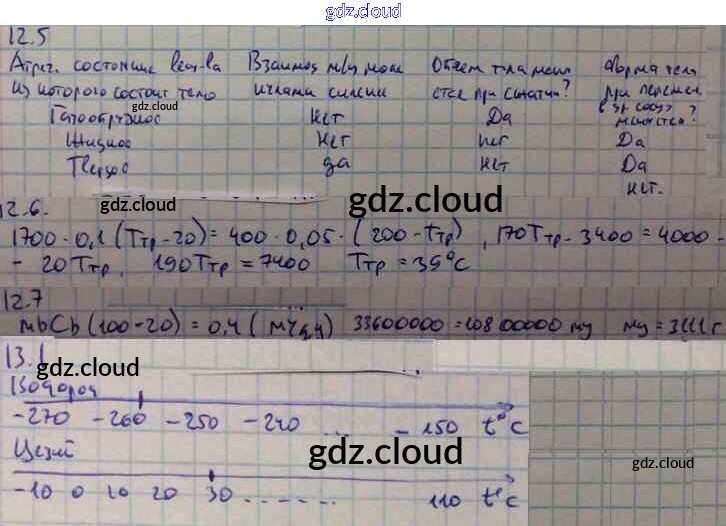 gdz.cloud
12.5
Агрег. состояние вещ-ва Взаимод м/у моле Объем тела меня Форма тела
из которого состоит тело кулами сильны ется при сжатии? при перемещ.
gdz.cloud в др сосуд
Газообразное Нет Да меняется?
Жидкое Нет нет Да
Твердое да Нет Да
нет.
12.6. gdz.cloud gdz.cloud
1700·0,1(Tтр-20)=400·0,05·(200-tтр), 170Tтр-3400=4000-
- 20Tтр, 190Tтр=7400 Tтр=39°C
12.7
mbCb(100-20)=0,4( mчqч) 33600000=10800000 mу mу=3,111 г
13.1 gdz.cloud
Водород
-270 -260 -250 -240 ... -150 t°C
Цезий gdz.cloud
gdz.cloud
-10 0 10 20 30 ....... 110 t°C